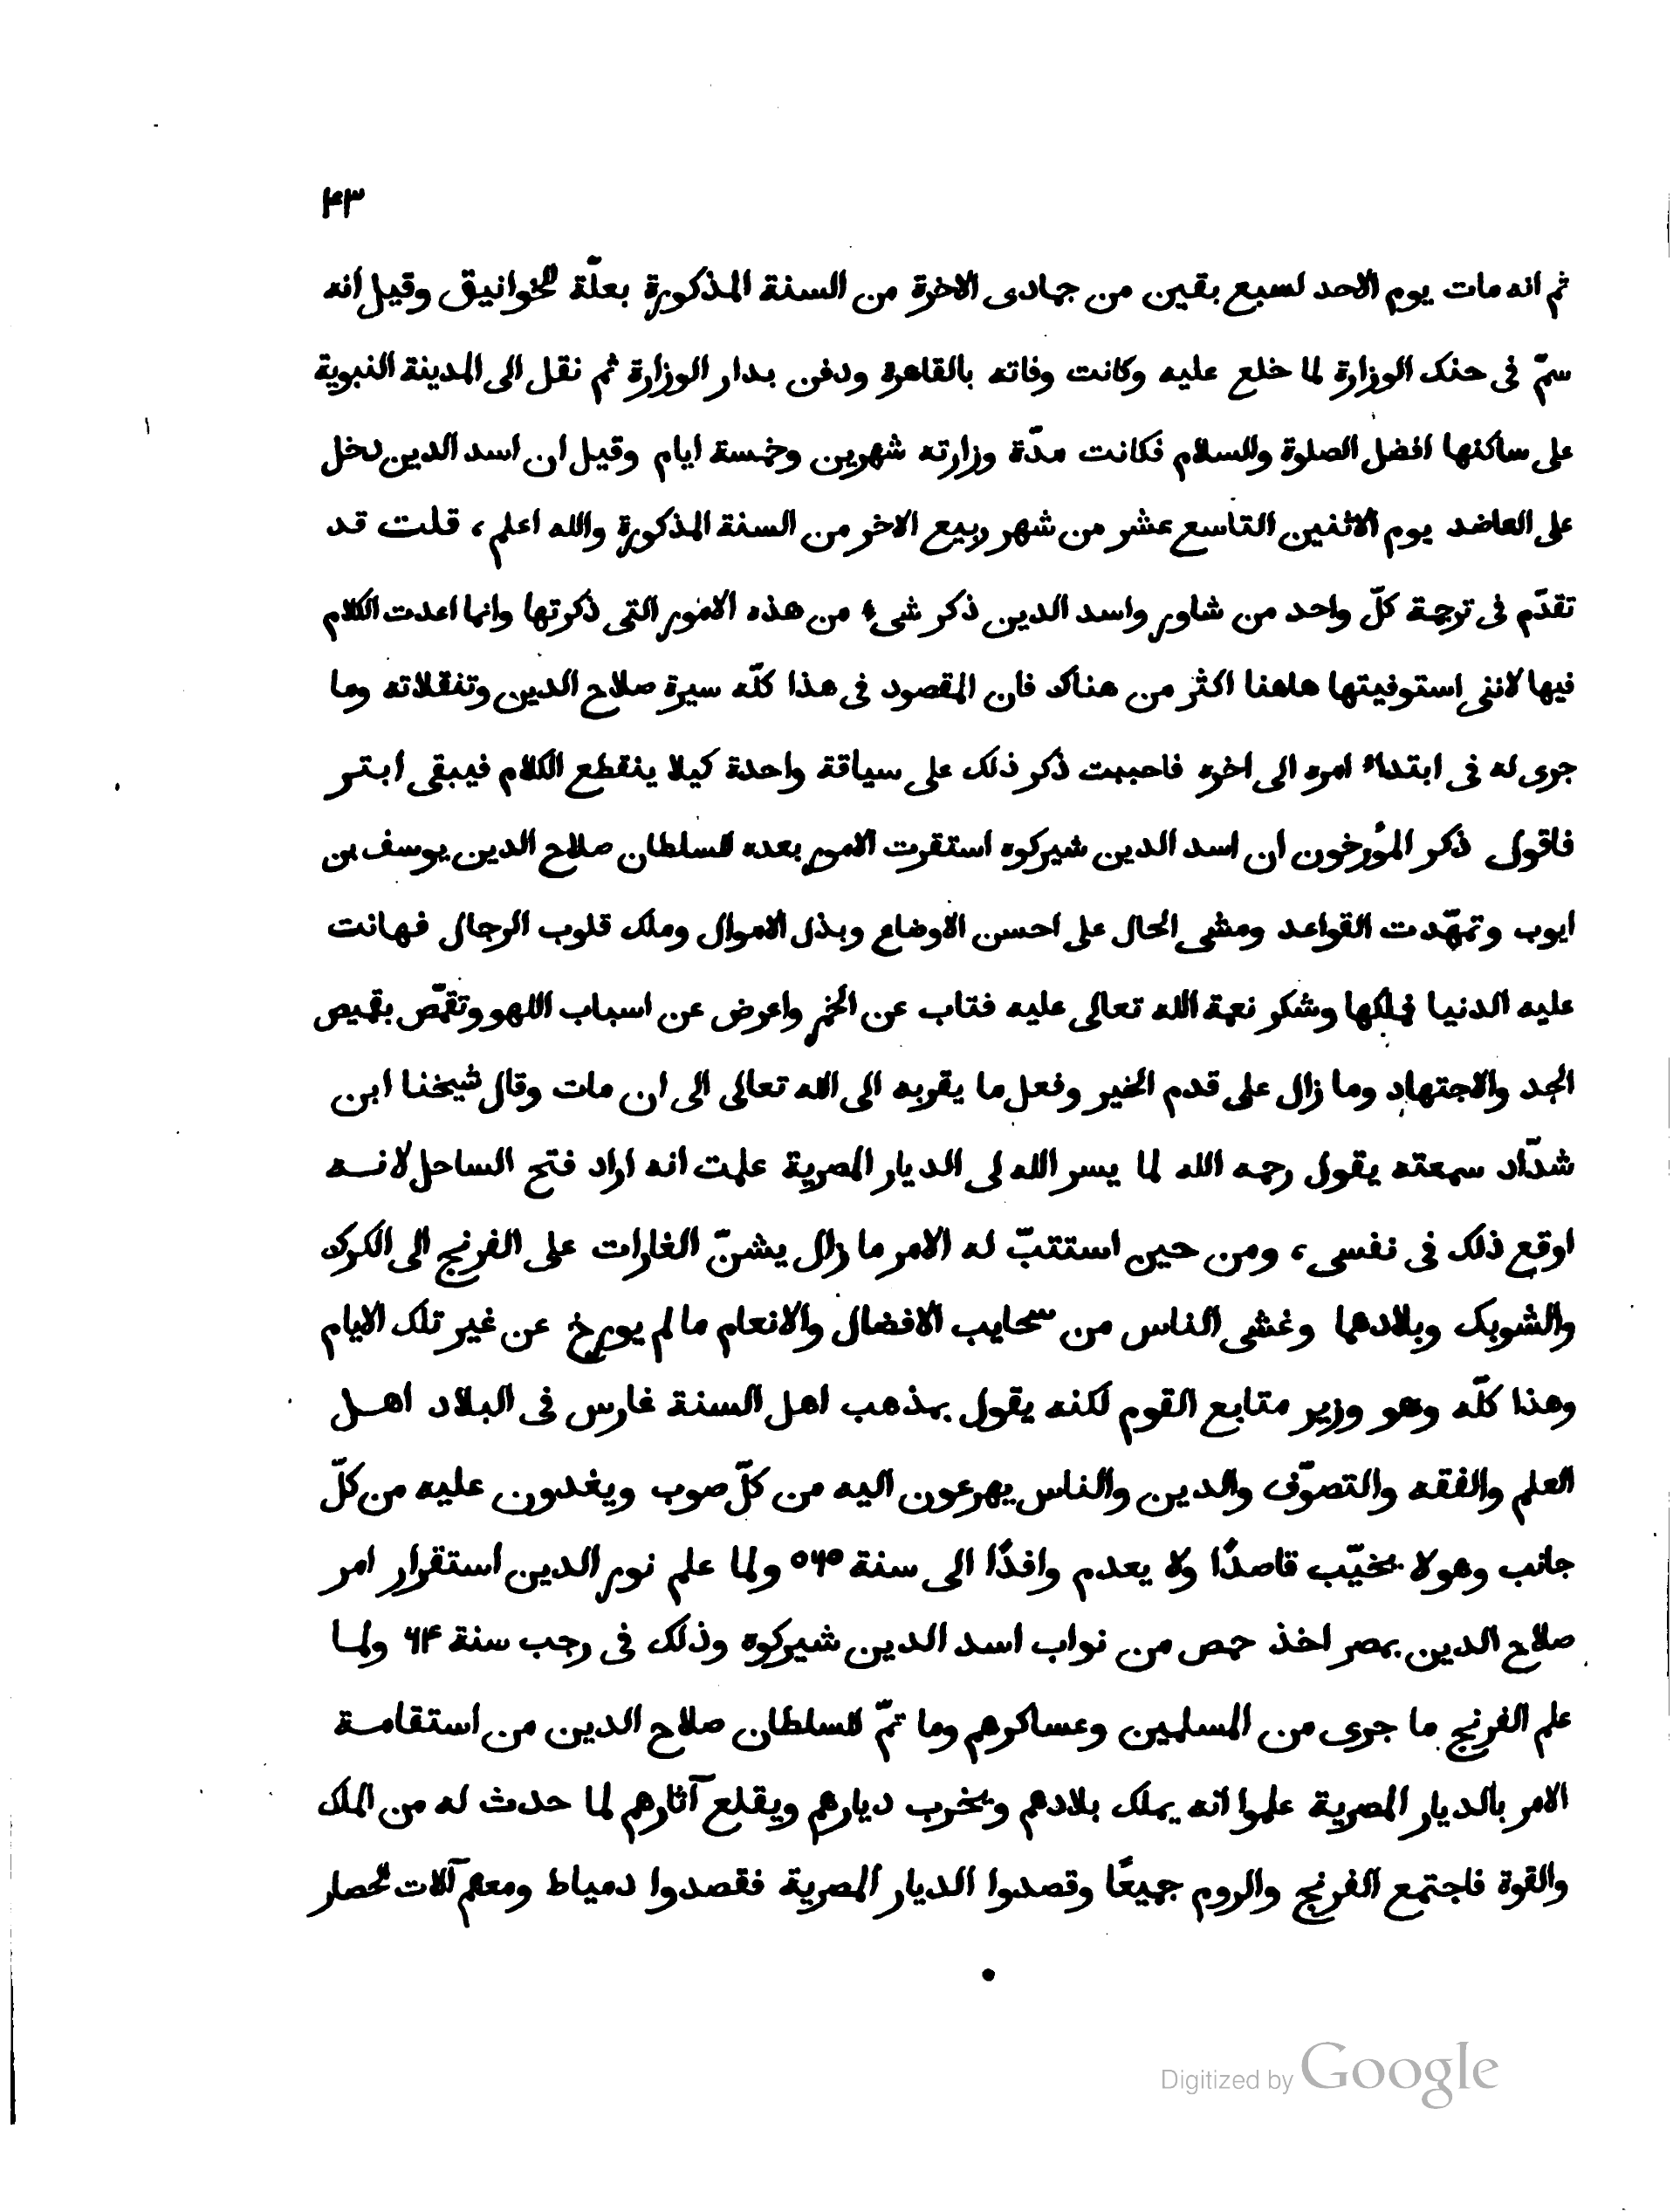 ۴۳
ثم انه مات يوم الاحد لسبع بقين من جمادى الاخرة من السنة المذكورة بعلّة الخوانيق وقيل انه
سمّ فى حنك الوزارة لما خلع عليه وكانت وفاته بالقاهرة ودفن بدار الوزارة ثم نقل الى المدينة النبوية
على ساكنها افضل الصلوة والسلام فكانت مدّة وزارته شهرين وخمسة ايام وقيل ان اسد الدين دخل
على العاضد يوم الاثنين التاسع عشر من شهر ربيع الاخر من السنة المذكورة والله اعلم، قلت قد
تقدّم فى ترجمة كلّ واحد من شاور واسد الدين ذكر شىء من هذه الامور التى ذكرتها وانما اعدت الكلام
فيها لاننى استوفيتها هاهنا اكثر من هناك فان المقصود فى هذا كلّه سيرة صلاح الدين وتنقلاته وما
جرى له فى ابتداء امره الى اخره فاحببت ذكر ذلك على سياقة واحدة كيلا ينقطع الكلام فيبقى ابتر
فاقول ذكر المؤرخون ان اسد الدين شيركوه استقرت الامور بعده للسلطان صلاح الدين يوسف بن
ايوب وتمهّدت القواعد ومشى الحال على احسن الاوضاع وبذل الاموال وملك قلوب الرجال فهانت
عليه الدنيا فملكها وشكر نعمة الله تعالى عليه فتاب عن الخمر واعرض عن اسباب اللهو وتقمّص بقميص
الجد والاجتهاد وما زال على قدم الخير وفعل ما يقربه الى الله تعالى الى ان مات وقال شيخنا ابن
شدّاد سمعته يقول رحمه الله لما يسر الله لى الديار المصرية علمت انه اراد فتح الساحل لانه
اوقع ذلك فى نفسى، ومن حين استتبّ له الامر ما زال يشنّ الغارات على الفرنج الى الكرك
والشوبك وبلادهما وغشى الناس من سحايب الافضال والانعام ما لم يورخ عن غير تلك الايام
وهذا كلّه وهو وزير متابع القوم لكنه يقول بمذهب اهل السنة غارس فى البلاد اهل
العلم والفقه والتصوّف والدين والناس يهرعون اليه من كلّ صوب ويغدون عليه من كلّ
جانب وهو لا يخيّب قاصدًا ولا يعدم وافدًا الى سنة ۵۶۵ ولما علم نور الدين استقرار امر
صلاح الدين بمصر اخذ حمص من نواب اسد الدين شيركوه وذلك فى رجب سنة ۶۴ ولما
علم الفرنج ما جرى من المسلمين وعساكرهم وما تمّ للسلطان صلاح الدين من استقامة
الامر بالديار المصرية علموا انه يملك بلادهم ويخرب ديارهم ويقلع آثارهم لما حدث له من الملك
والقوة فاجتمع الفرنج والروم جميعًا وقصدوا الديار المصرية فقصدوا دمياط ومعهم آلات الحصار
Digitized by Google